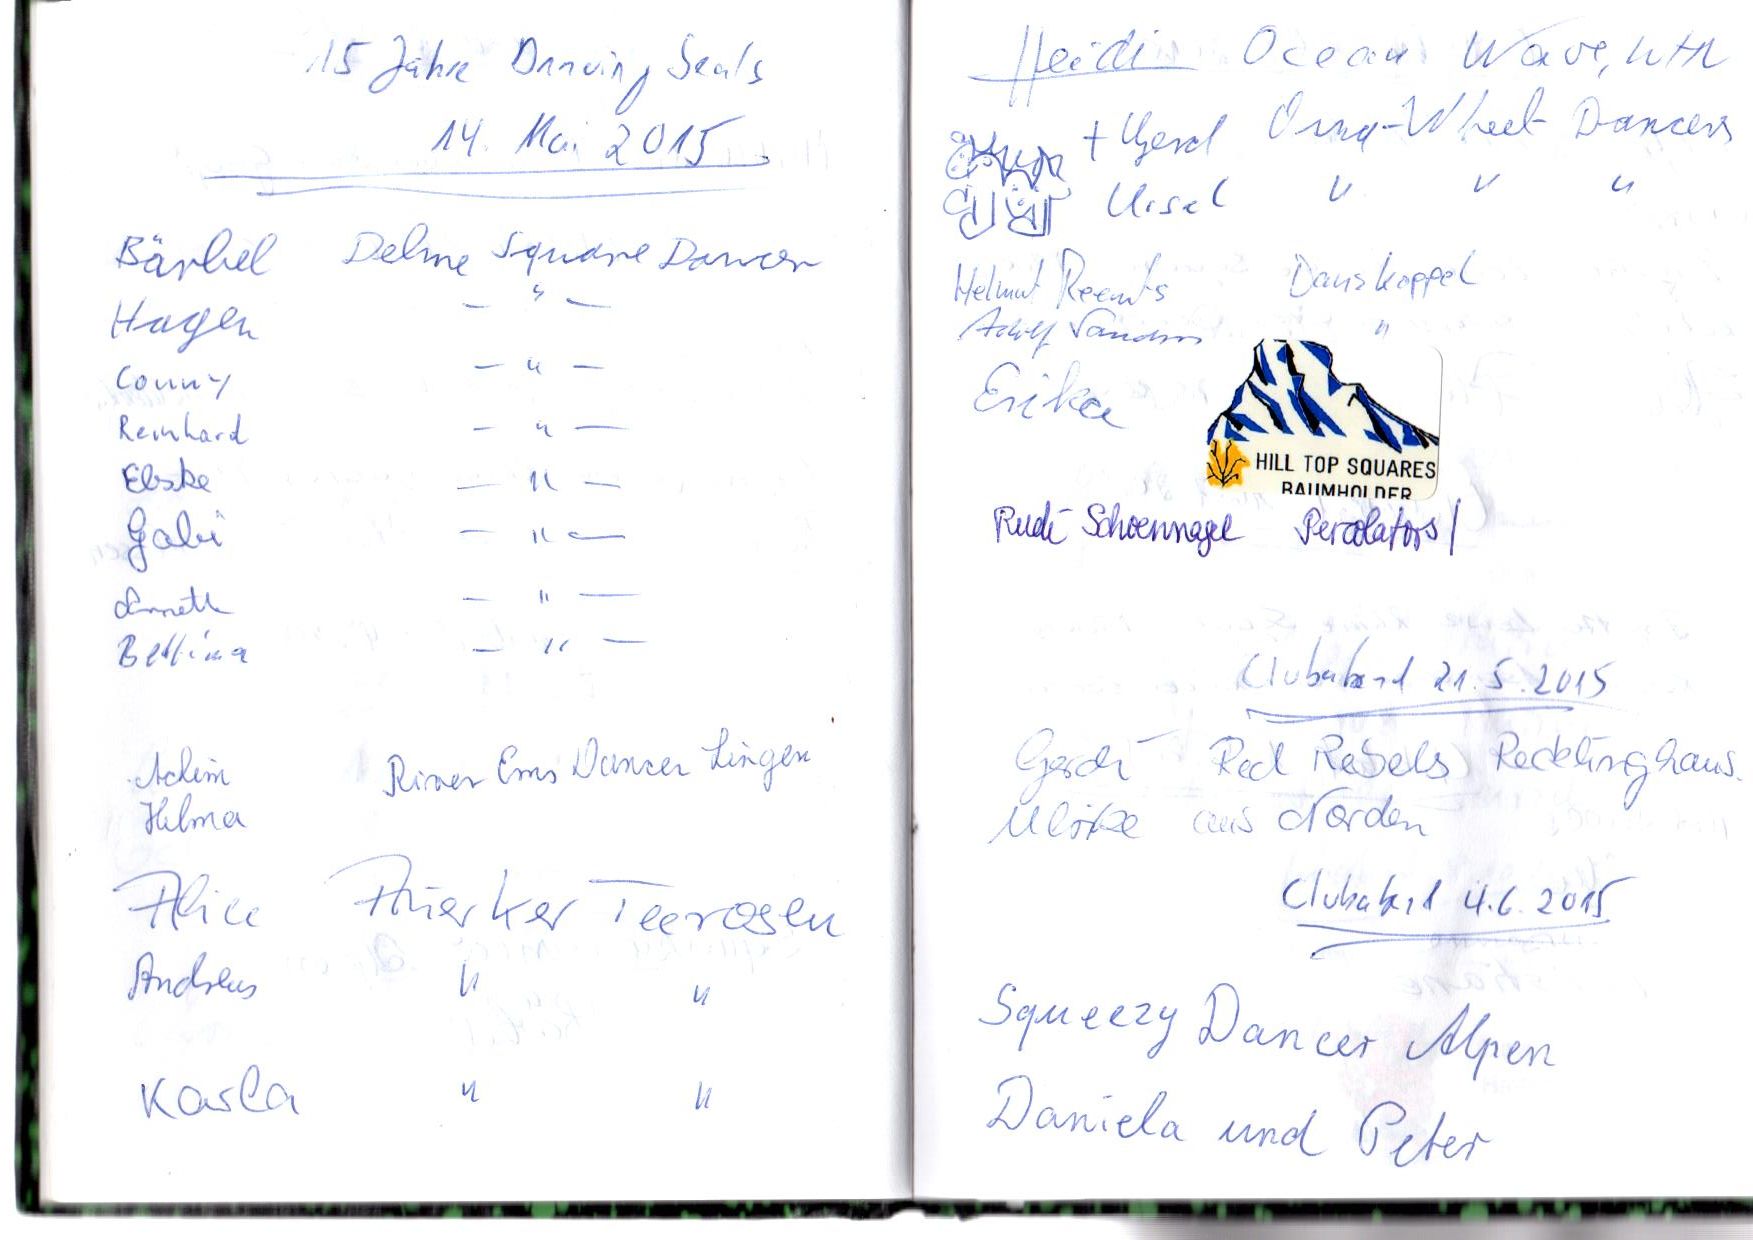 15 Jahre Dancing Seals
14. Mai 2015
Bärbel Delme Square Dancer
Hagen — " —
Conny — " —
Reinhard — " —
Ebske — " —
Gabi — " —
— " —
Bettina — " —
Achim River Ems Dancer Lingen
Hilma
Alice Auerker Teerosen
Andreas " "
Karla " "
Heidi Ocean Wave, WHV
+ Gerd Dancers
Ursel " " "
Helmut Reents Danskoppel
Adolf "
Erika
HILL TOP SQUARES
BAUMHOLDER
Rudi Schoennagel Percolators/
Clubabend 21.5.2015
Gerdi Red Rebels Recklinghaus.
Ulrike aus Norden
Clubabend 4.6.2015
Squeezy Dancer Alpen
Daniela und Peter